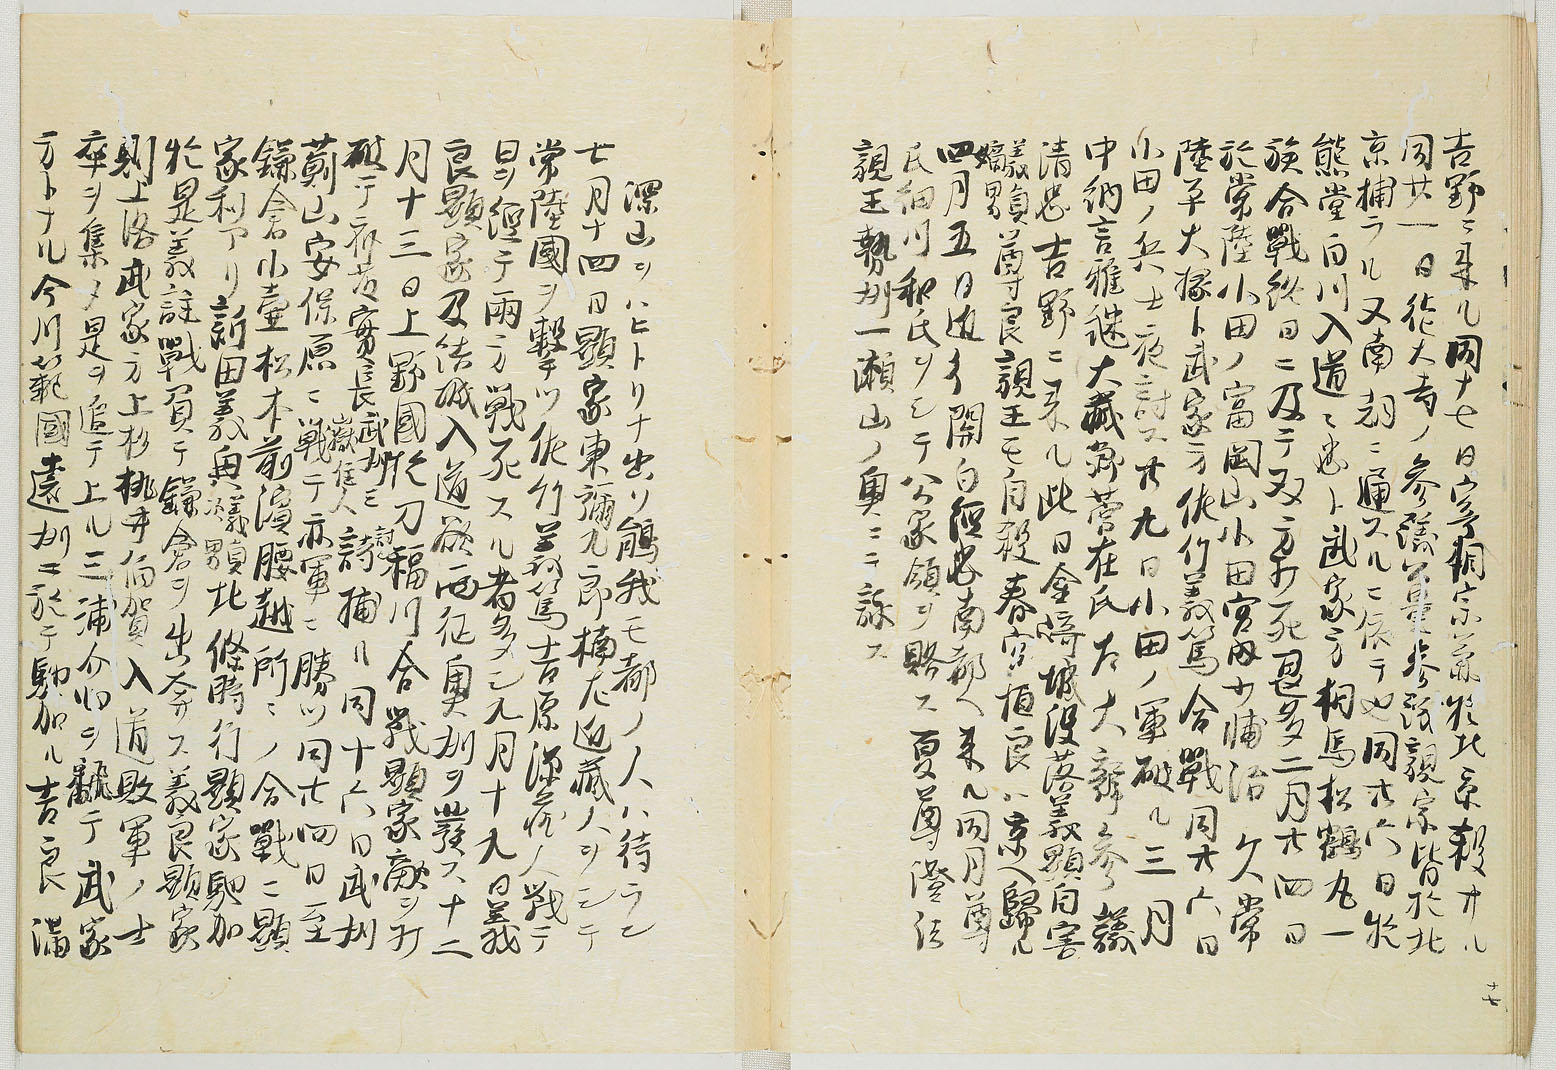 吉野ニ来ル同十七日宰相宗兼於北京殺サル
同廿一日従大寺ノ参議兼参議親宗皆於北
京捕ラル又南朝ニ通スルニ依テ也同廿六日於
熊堂白川入道ニ忠ト武家方相馬松鶴丸一
族合戦終日ニ及テ双方打死畏多二月廿四日
於常陸小田ノ富岡山小田宮内少輔治久常
陸平大掾ト武家方佐竹義篤合戦同廿六日
小田ノ兵士夜討ス廿九日小田ノ軍破ル三月
中納言雅継大蔵卿菅在氏左大辨参議
清忠吉野ニ来ル此日金崎城没落義顕自害
義貞嫡男尊良親王モ自殺春宮恒良ハ京ヘ歸ル
四月五日近衛関白經忠南都ヘ来ル同月尊
氏細川和氏ヲシテ公家領ヲ賂ス夏尊澄法
親王勢州一瀬山ノ奥ニテ詠ス
深山ヲハヒトリナ出ソ鵑我モ都ノ人ハ待ラン
七月十四日顕家東彌九郎楠左近蔵人ヲシテ
常陸國ヲ撃ツ佐竹義篤吉原蔵人戦テ
日ヲ經テ兩方戦死スル者多シ九月十九日義
良顕家及結城入道欲西征奥州ヲ發ス十二
月十三日上野國ノ刀福川合戦顕家敵ヲ打
破テ實長武州嶽住人討捕ル同十六日武州
薊山安保原ニ戦テ亦軍ニ勝ツ同廿四日至
鎌倉小壷松木前濱腰越所ニノ合戦ニ顕
家利アリ新田義興義貞次男北條時行顕家馳加
於是義詮戦負テ鎌倉ヲ出奔ス義良顕家
則上洛武家方上杉桃井伯賀入道敗軍ノ士
卒ヲ集メ是ヲ追テ上ル三浦介旧ヲ翻テ武家
方トナル今川範國遠州ニ於テ馳加ル吉良満
十七